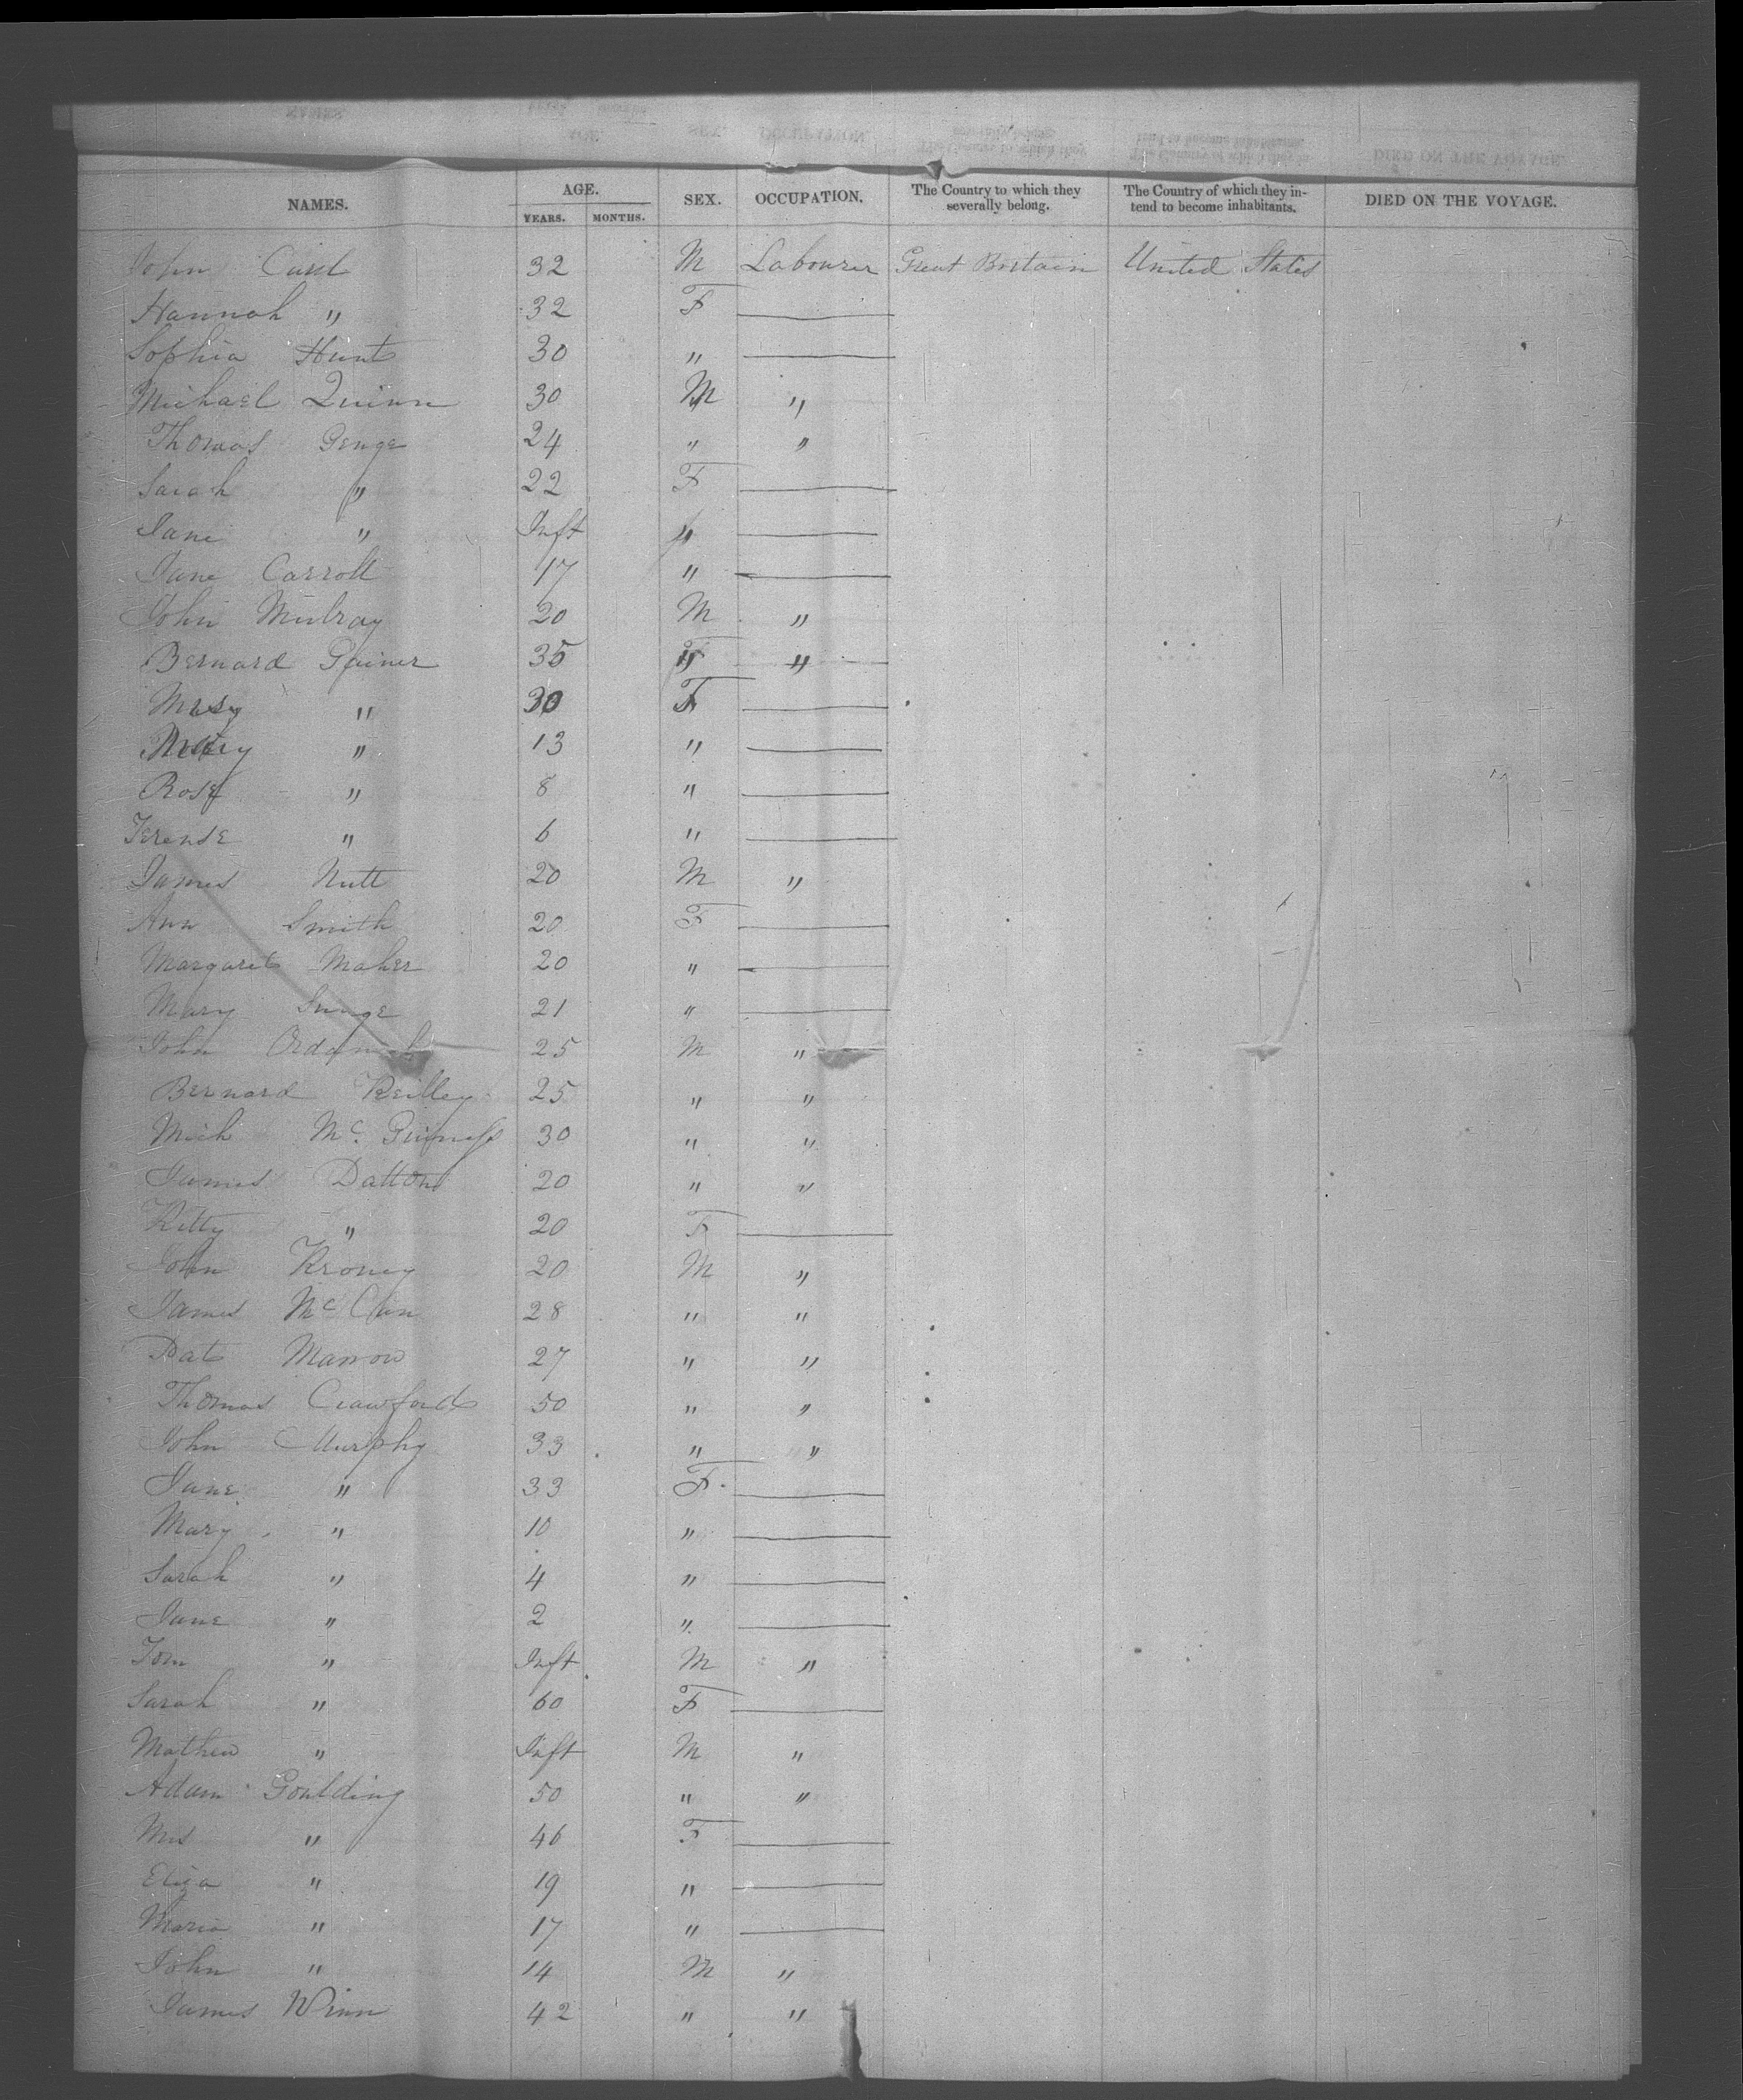 NAMES. AGE. SEX. OCCUPATION. The Country to which they severally belong. The Country of which they intend to become inhabitants. DIED ON THE VOYAGE.
YEARS. MONTHS.
John 32 M Labourer Great Britain United States
Hannah " 32 F
Sophia Hunt 30 "
Michael Quinn 30 M "
Thomas Genge 24 " "
Sarah " 22 F
Jane " Inft "
Jane Carroll 17 "
John Mulray 20 M "
Bernard Gainer 35 " "
" 30 F
Mary " 13 "
Rose " 8 "
Terense " 6 "
James Nutt 20 M "
Ann Smith 20 F
Margaret Maher 20 "
Mary 21 "
John 25 M "
Bernard Reilley 25 " "
Mich Mc. Guiness 30 " "
James Dalton 20 " "
Kitty " 20 F
John Kroney 20 M "
James McCan 28 " "
Pat Marrow 27 " "
Thomas Crawford 50 " "
John Murphy 33 " "
Jane " 33 F
Mary " 10 "
Sarah " 4 "
Jane " 2 "
Tom " Inft M "
Sarah " 60 F
Mathew " Inft M "
Adam Goulding 50 " "
Mrs " 46 F
Eliza " 19 "
Maria " 17 "
John " 14 M "
James Winn 42 " "